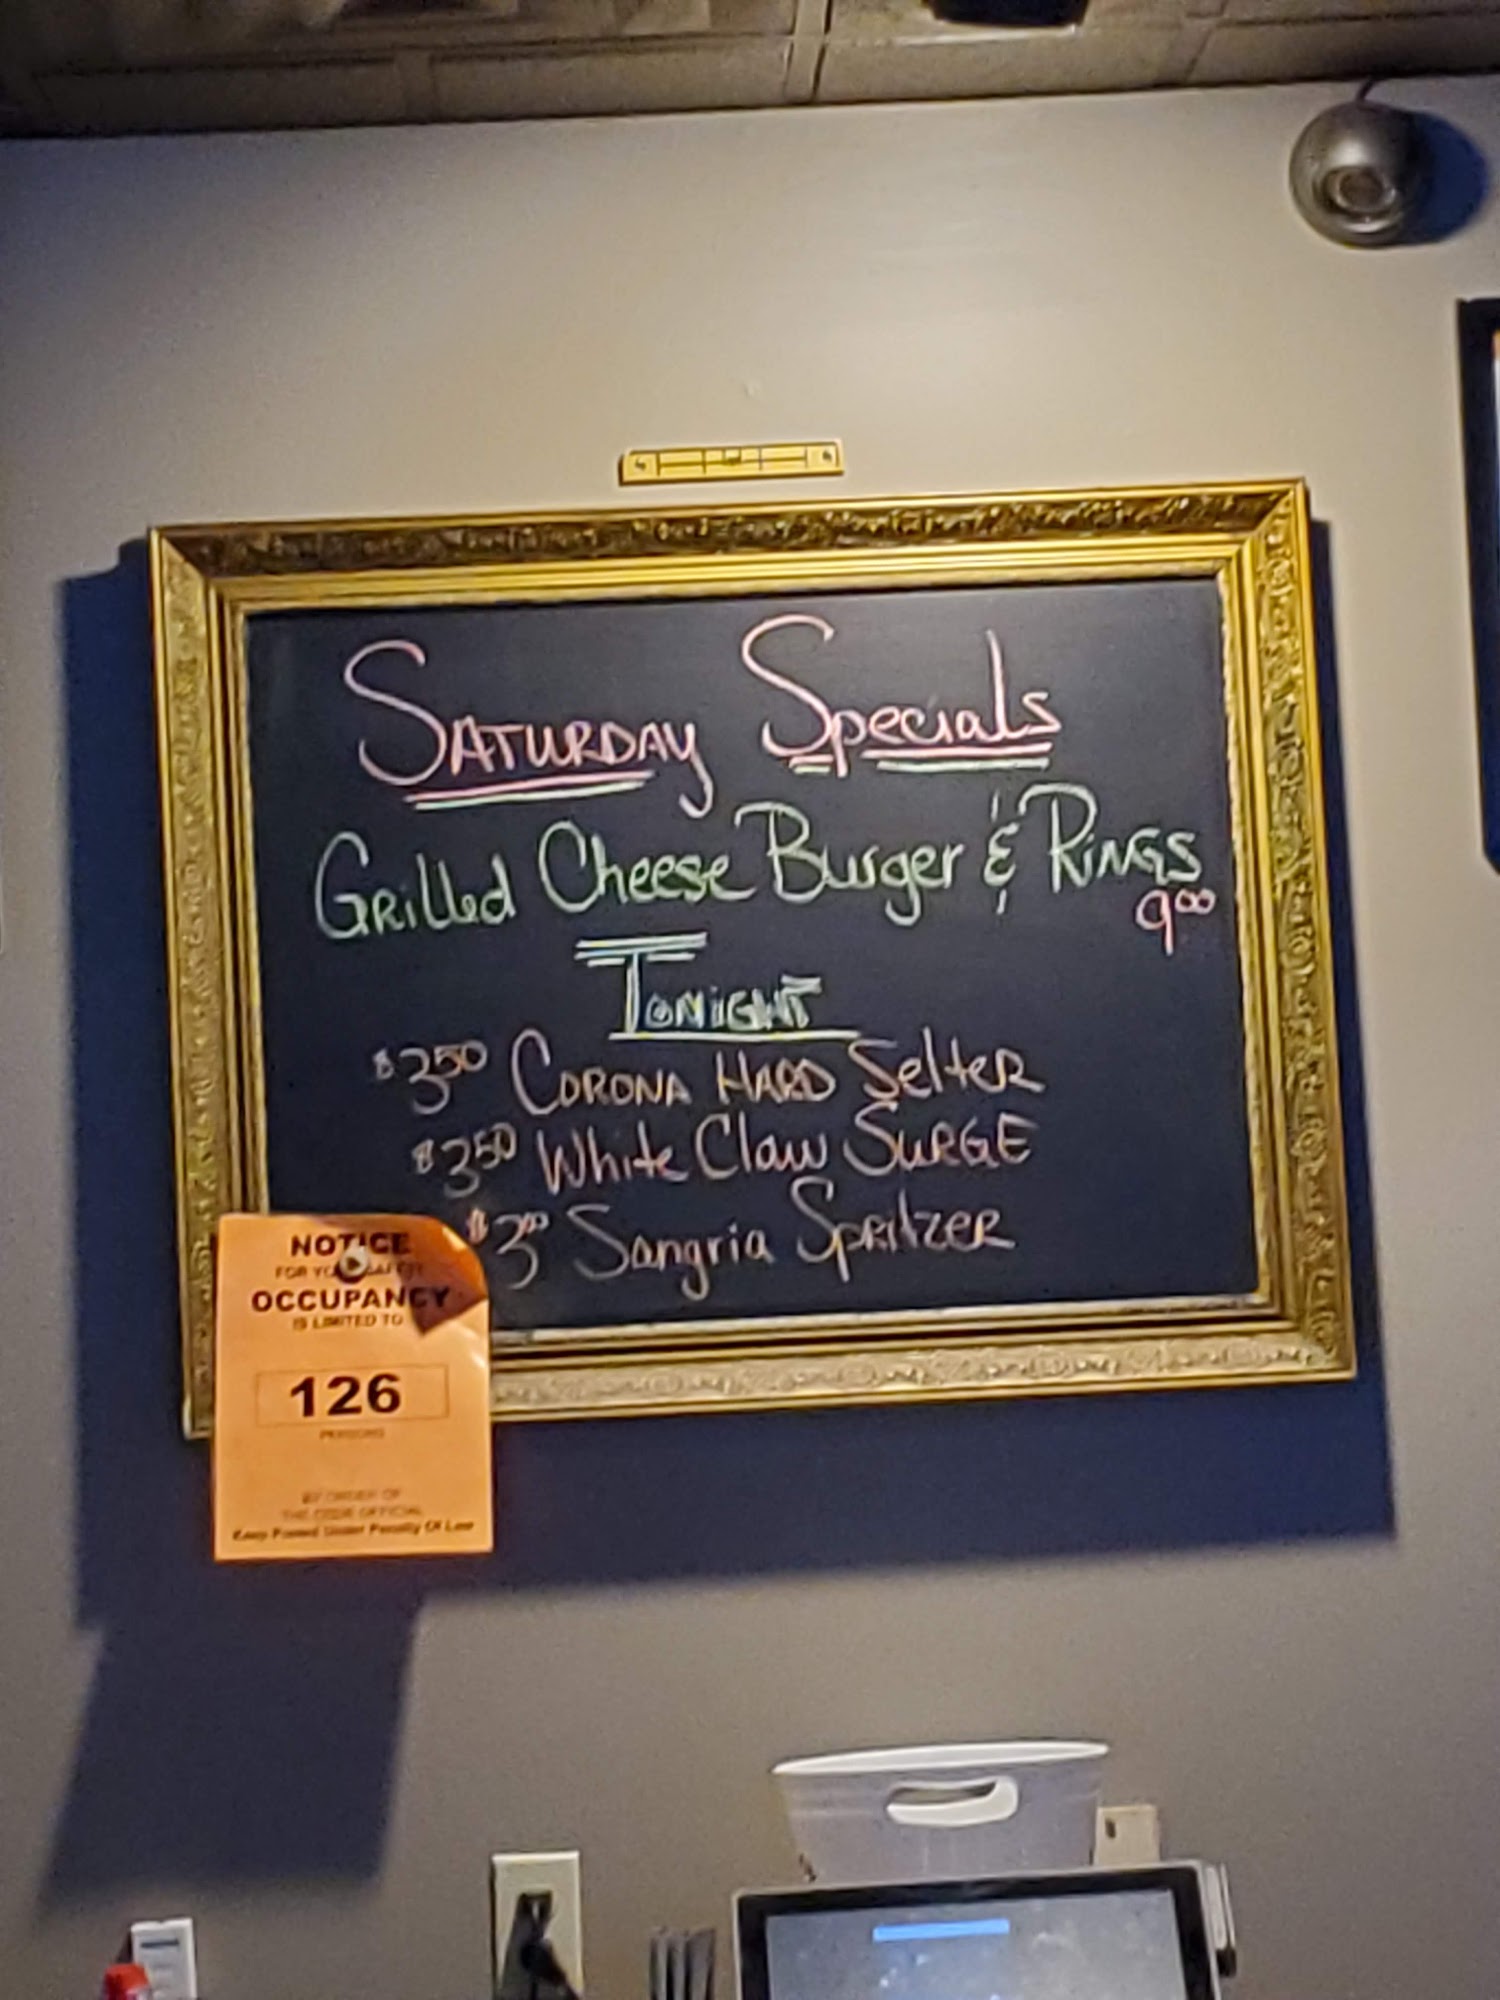 Saturday Specials
Grilled Cheese Burger & Rings
9.00
Tonight
$3.50 Corona Hard Selter
$3.50 White Claw Surge
$3.00 Sangria Spritzer
NOTICE
FOR YOUR SAFETY
OCCUPANCY
IS LIMITED TO
126
PERSONS
BY ORDER OF
THE CODE OFFICIAL
Keep Posted Under Penalty Of Law